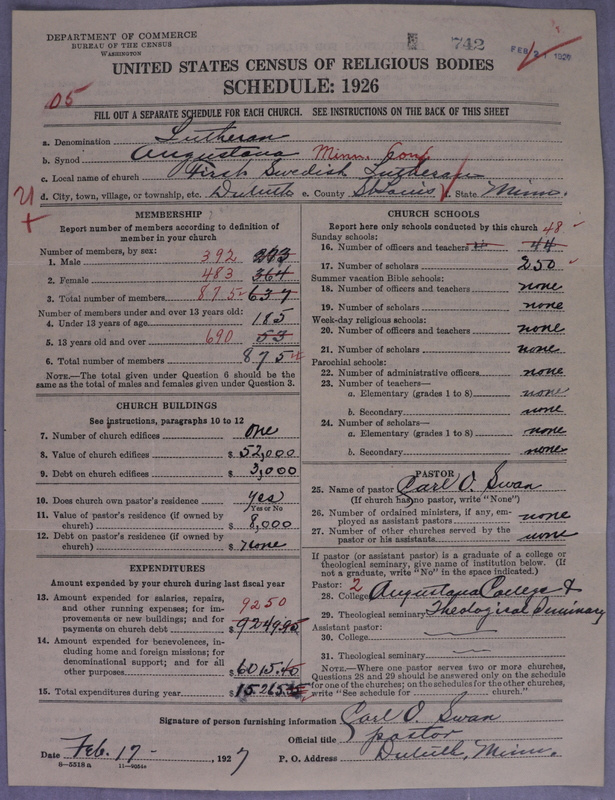 DEPARTMENT OF COMMERCE
BUREAU OF THE CENSUS
WASHINGTON
742
FEB 21 1928
UNITED STATES CENSUS OF RELIGIOUS BODIES
SCHEDULE: 1926
05
FILL OUT A SEPARATE SCHEDULE FOR EACH CHURCH. SEE INSTRUCTIONS ON THE BACK OF THIS SHEET
a. Denomination Lutheran
b. Synod Augustana Minn. Conf
c. Local name of church First Swedish Lutheran
d. City, town, village, or township, etc. Duluth e. County St Louis f. State Minn.
MEMBERSHIP
Report number of members according to definition of
member in your church
Number of members, by sex:
1. Male 392 293
2. Female 483 364
3. Total number of members 875 637
Number of members under and over 13 years old:
4. Under 13 years of age 185
5. 13 years old and over 690 53
6. Total number of members 875
NOTE.—The total given under Question 6 should be the
same as the total of males and females given under Question 3.
CHURCH BUILDINGS
See instructions, paragraphs 10 to 12
7. Number of church edifices One
8. Value of church edifices $ 52,000
9. Debt on church edifices $ 3,000
10. Does church own pastor's residence yes
Yes or No
11. Value of pastor's residence (if owned by
church) $ 8,000
12. Debt on pastor's residence (if owned by
church) $ None
EXPENDITURES
Amount expended by your church during last fiscal year
13. Amount expended for salaries, repairs,
and other running expenses; for im-
provements or new buildings; and for
payments on church debt 9250 $ 9249.95
14. Amount expended for benevolences, in-
cluding home and foreign missions; for
denominational support; and for all
other purposes $ 6015.40
15. Total expenditures during year $ 15265.35
CHURCH SCHOOLS
Report here only schools conducted by this church
Sunday schools:
16. Number of officers and teachers 48 44
17. Number of scholars 250
Summer vacation Bible schools:
18. Number of officers and teachers none
19. Number of scholars none
Week-day religious schools:
20. Number of officers and teachers none
21. Number of scholars none
Parochial schools:
22. Number of administrative officers none
23. Number of teachers—
a. Elementary (grades 1 to 8) none
b. Secondary none
24. Number of scholars—
a. Elementary (grades 1 to 8) none
b. Secondary none
PASTOR
25. Name of pastor Carl O. Swan
(If church has no pastor, write "None")
26. Number of ordained ministers, if any, em-
ployed as assistant pastors none
27. Number of other churches served by the
pastor or his assistants none
If pastor (or assistant pastor) is a graduate of a college or
theological seminary, give name of institution below. (If
not a graduate, write "No" in the space indicated.)
Pastor: 2
28. College Augustana College &
29. Theological seminary Theological Seminary
Assistant pastor:
30. College
31. Theological seminary
NOTE.—Where one pastor serves two or more churches,
Questions 28 and 29 should be answered only on the schedule
for one of the churches; on the schedules for the other churches,
write "See schedule for church."
Signature of person furnishing information Carl O. Swan
Official title pastor
Date Feb. 17 - , 1927 P. O. Address Duluth, Minn.
8-5518 a